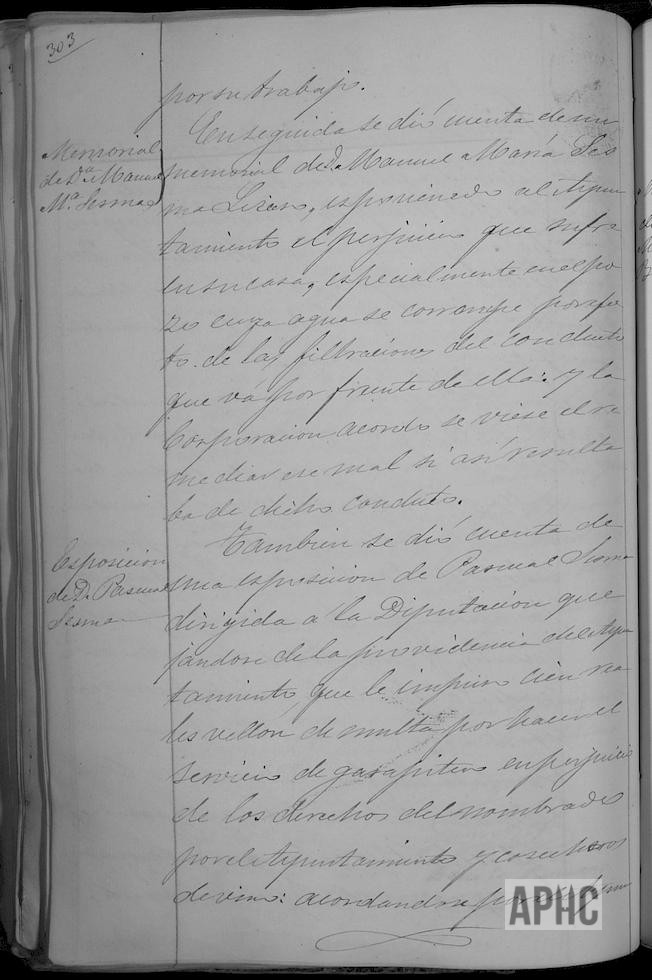 303
por su trabajo.
Memorial
de Dª Manuela
Mª Sesma
En seguida se dió cuenta de un
memorial de Dª Manuela María Ses
ma Liran, esponiendo al Ayun
tamiento el perjuicio que sufre
en su casa, especialmente en el po
zo cuya agua se corrompe por efec
to de las filtraciones del conducto
que vá por frente de ella: y la
Corporacion acordó se viese el re
mediar ese mal si así resulta
ba de dicho conducto.
Esposicion
de D. Pascual
Sesma
Tambien se dió cuenta de
una esposicion de Pascual Sesma
dirigida á la Diputacion que
jandose de la providencia del Ayun
tamiento que le impuso cien rea
les vellon de multa por hacer el
servicio de garapitero en perjuicio
de los derechos del nombrado
por el Ayuntamiento y cosecheros
de vino: acordandose por
APHC